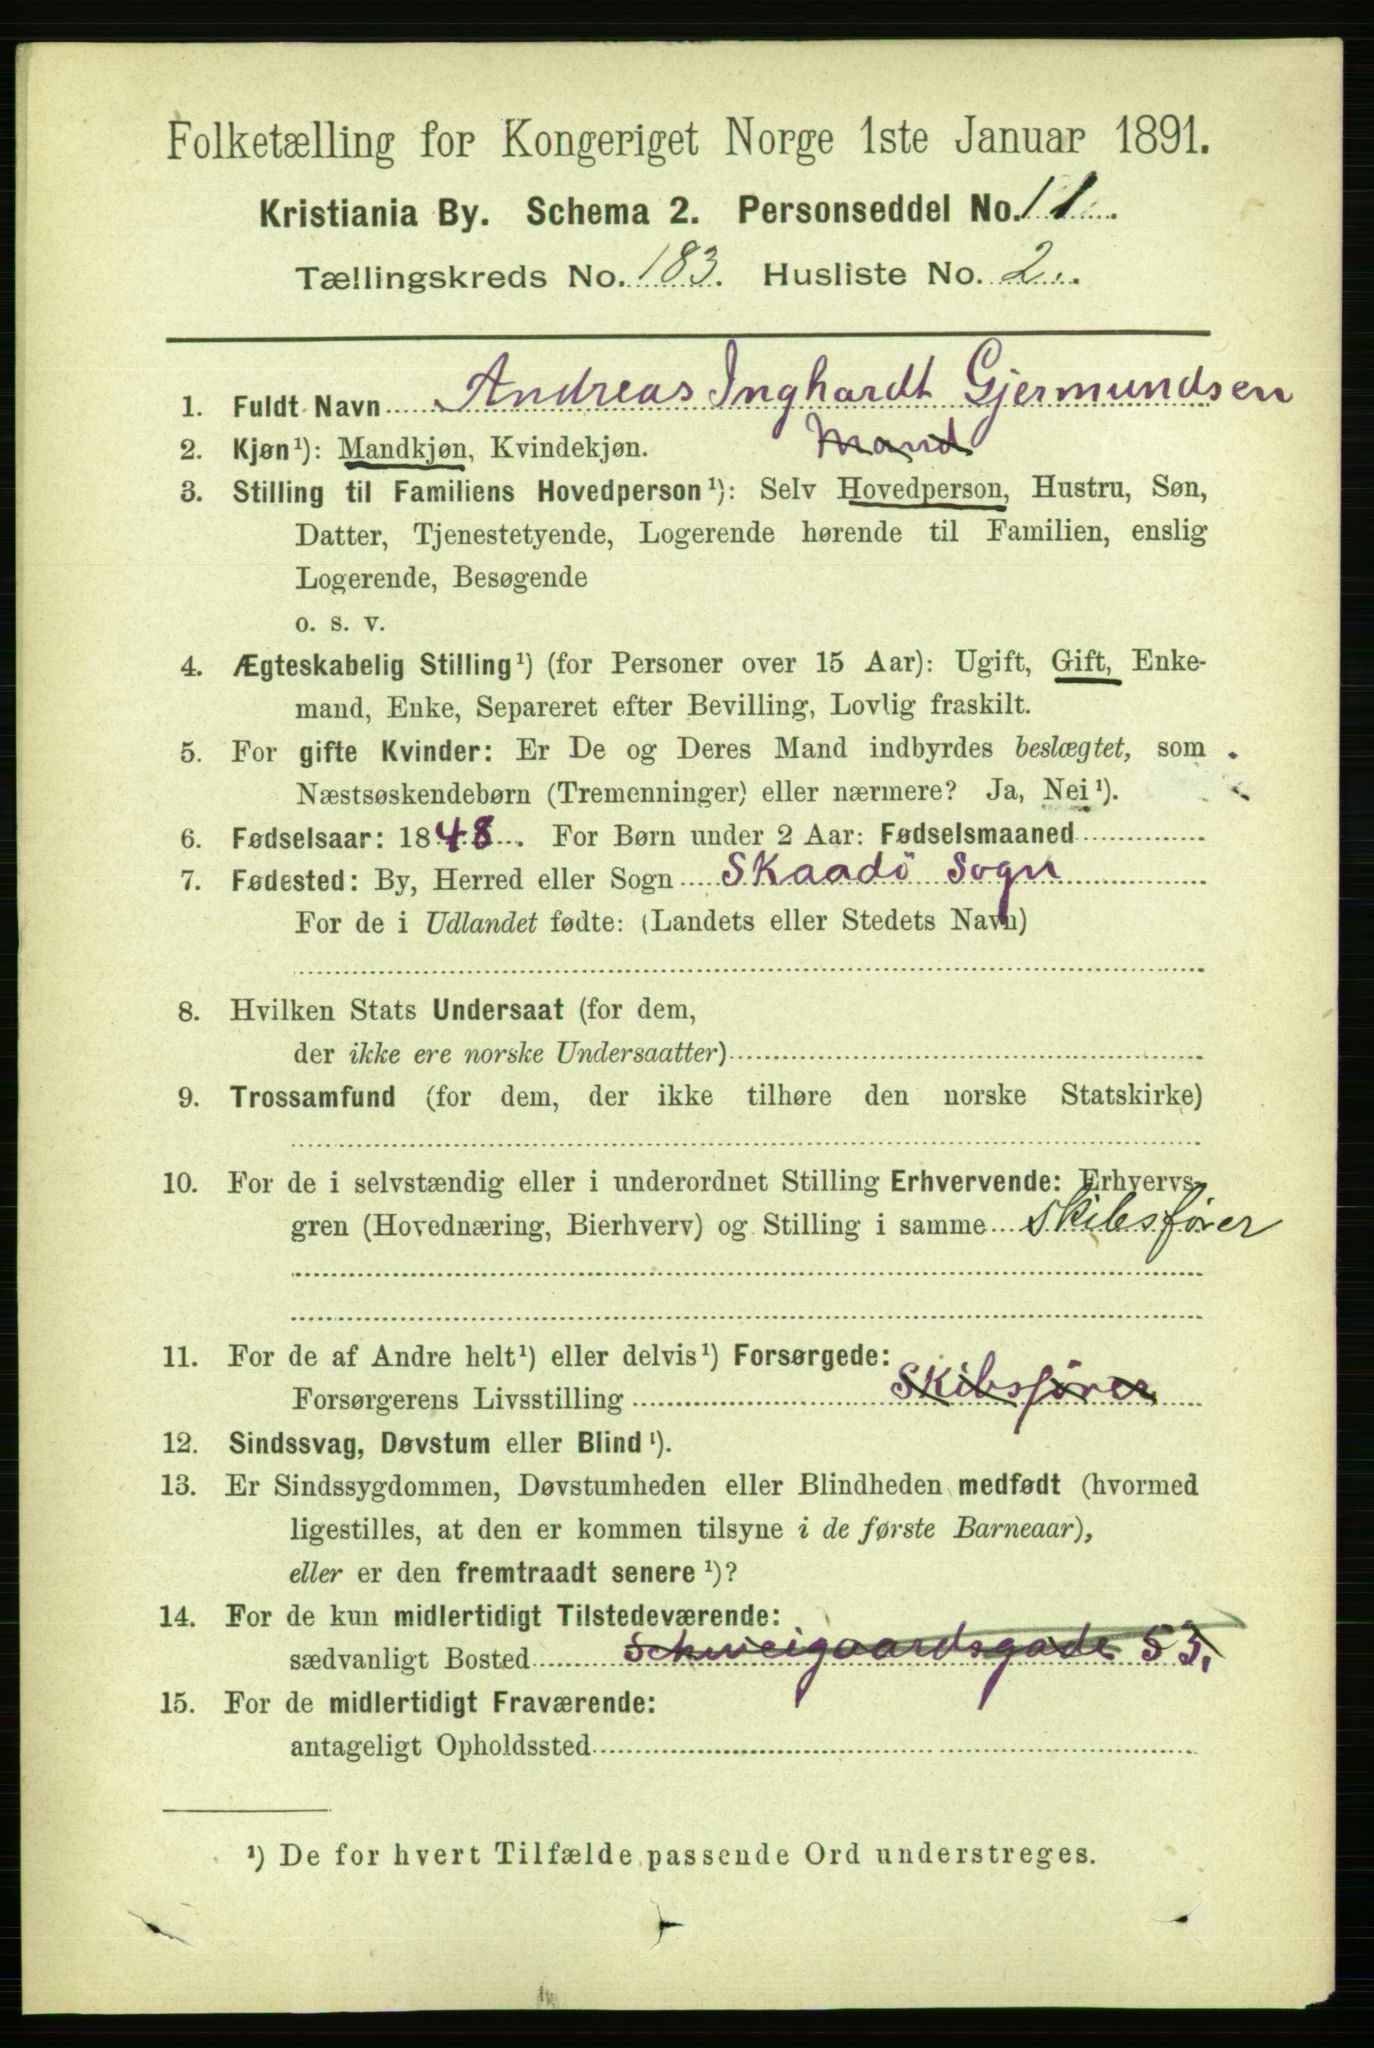 Folketælling for Kongeriget Norge 1ste Januar 1891.
Kristiania By. Schema 2. Personseddel No. 11
Tællingskreds No. 183. Husliste No. 2.
1. Fuldt Navn Andreas Inghardt Gjermundsen
2. Kjøn¹): Mandkjøn, Kvindekjøn. Mand
3. Stilling til Familiens Hovedperson¹): Selv Hovedperson, Hustru, Søn,
Datter, Tjenestetyende, Logerende hørende til Familien, enslig
Logerende, Besøgende
o. s. v.
4. Ægteskabelig Stilling¹) (for Personer over 15 Aar): Ugift, Gift, Enke-
mand, Enke, Separeret efter Bevilling, Lovlig fraskilt.
5. For gifte Kvinder: Er De og Deres Mand indbyrdes beslægtet, som
Næstsøskendebørn (Tremenninger) eller nærmere? Ja, Nei¹).
6. Fødselsaar: 1848. For Børn under 2 Aar: Fødselsmaaned
7. Fødested: By, Herred eller Sogn Skaadö Sogn
For de i Udlandet fødte: (Landets eller Stedets Navn)
8. Hvilken Stats Undersaat (for dem,
der ikke ere norske Undersaatter)
9. Trossamfund (for dem, der ikke tilhøre den norske Statskirke)
10. For de i selvstændig eller i underordnet Stilling Erhvervende: Erhvervs-
gren (Hovednæring, Bierhverv) og Stilling i samme Skibsfører
11. For de af Andre helt¹) eller delvis¹) Forsørgede:
Forsørgerens Livsstilling Skibsfører
12. Sindssvag, Døvstum eller Blind¹).
13. Er Sindssygdommen, Døvstumheden eller Blindheden medfødt (hvormed
ligestilles, at den er kommen tilsyne i de første Barneaar),
eller er den fremtraadt senere¹)?
14. For de kun midlertidigt Tilstedeværende:
sædvanligt Bosted Schweigaardsgade 53.
15. For de midlertidigt Fraværende:
antageligt Opholdssted
¹) De for hvert Tilfælde passende Ord understreges.